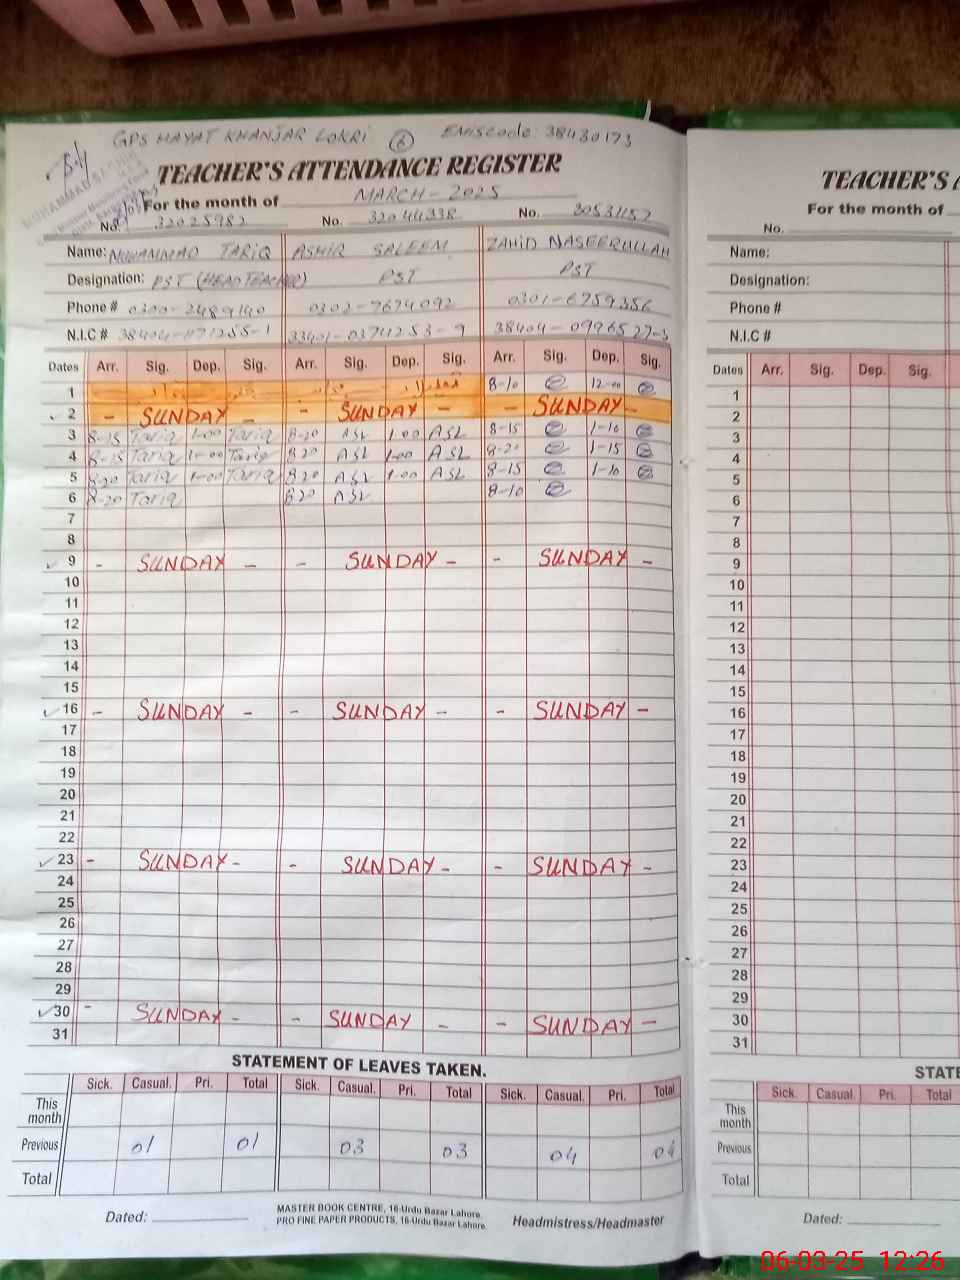 GPS HAYAT KHANJAR LOKRI 6 EMIScode: 38430173
TEACHER'S ATTENDANCE REGISTER
For the month of MARCH-2025
No. 32025982 No. 32044338 No. 30531157
Name: MUHAMMAD TARIQ ASHIR SALEEM ZAHID NASEERULLAH
Designation: PST (HEAD TEACHER) PST PST
Phone # 0300-2489140 0302-7674092 0301-6759356
N.I.C # 38404-1171255-1 33401-0374253-9 38404-0996527-3
Dates Arr. Sig. Dep. Sig. Arr. Sig. Dep. Sig. Arr. Sig. Dep. Sig.
1 8-10 12-00
2 - SUNDAY - - SUNDAY - - SUNDAY -
3 8-15 Tariq 1-00 Tariq 8-20 ASL 1-00 ASL 8-15 1-10
4 8-15 Tariq 1-00 Tariq 820 ASL 1-00 ASL 8-20 1-15
5 8-20 Tariq 1-00 Tariq 820 ASL 1-00 ASL 8-15 1-10
6 8-20 Tariq 820 ASL 8-10
7
8
9 - SUNDAY - - SUNDAY - - SUNDAY -
10
11
12
13
14
15
16 - SUNDAY - - SUNDAY - - SUNDAY -
17
18
19
20
21
22
23 - SUNDAY - - SUNDAY - - SUNDAY -
24
25
26
27
28
29
30 - SUNDAY - - SUNDAY - - SUNDAY -
31
STATEMENT OF LEAVES TAKEN.
Sick. Casual. Pri. Total Sick. Casual. Pri. Total Sick. Casual. Pri. Total
This month
Previous 01 01 03 03 04 04
Total
Dated:
MASTER BOOK CENTRE, 16-Urdu Bazar Lahore.
PRO FINE PAPER PRODUCTS, 16-Urdu Bazar Lahore.
Headmistress/Headmaster
TEACHER'S A
For the month of
No.
Name:
Designation:
Phone #
N.I.C #
Dates Arr. Sig. Dep. Sig.
1
2
3
4
5
6
7
8
9
10
11
12
13
14
15
16
17
18
19
20
21
22
23
24
25
26
27
28
29
30
31
STATE
Sick. Casual. Pri. Total
This month
Previous
Total
Dated:
06-03-25 12:26